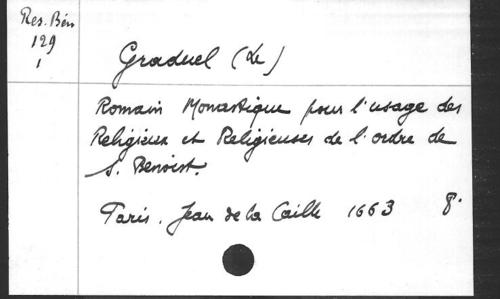 Res. Bén
129
1
Graduel (Le)
Romain Monastique pour l'usage des
Religieux et Religieuses de l'ordre de
S. Benoist.
Paris. Jean de la Caille 1663 8°